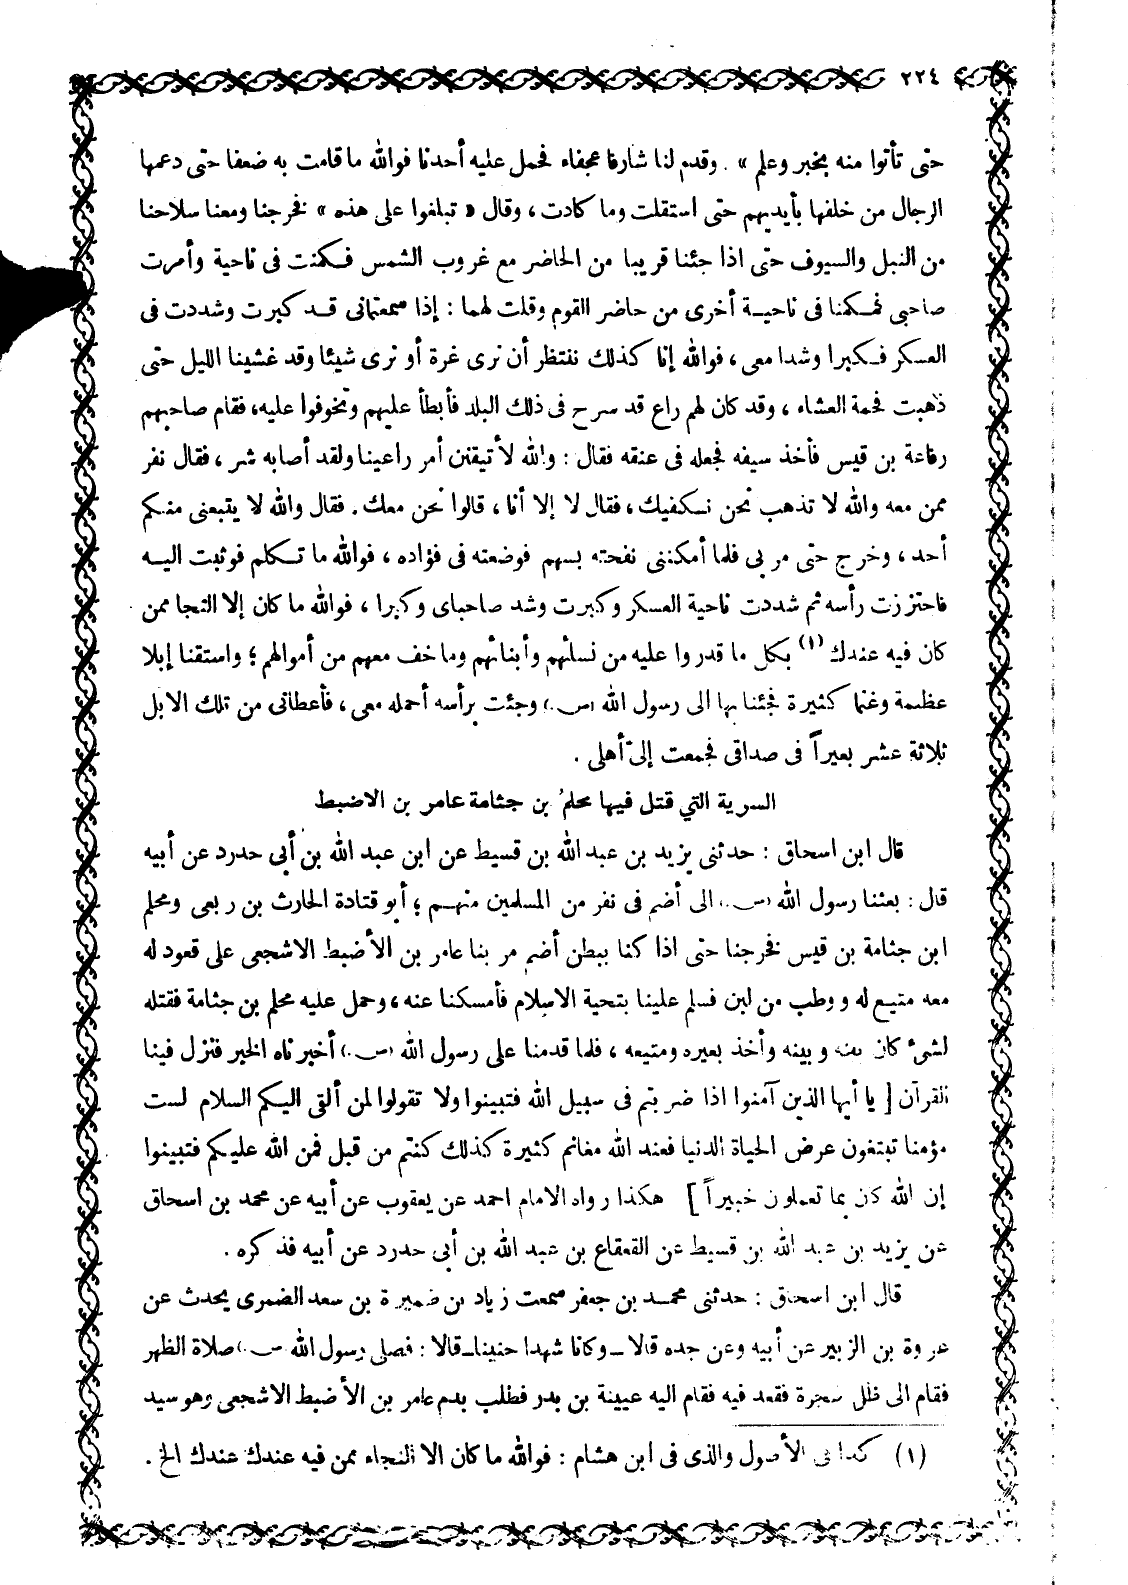 ٢٢٤
حتى تأتوا منه بخبر وعلم » . وقدم لنا شارفا عجفاء فحمل عليه أحدنا فوالله ما قامت به ضعفا حتى دعمها
الرجال من خلفها بأيديهم حتى استقلت وما كادت ، وقال « تبلغوا على هذه » فخرجنا ومعنا سلاحنا
من النبل والسيوف حتى اذا جئنا قريبا من الحاضر مع غروب الشمس فكمنت فى ناحية وأمرت
صاحبى فكمنا فى ناحية أخرى من حاضر القوم وقلت لهما : إذا سمعتمانى قد كبرت وشددت فى
العسكر فكبرا وشدا معى ، فوالله إنا كذلك ننتظر أن نرى غرة أو نرى شيئا وقد غشينا الليل حتى
ذهبت فحمة العشاء ، وقد كان لهم راع قد سرح فى ذلك البلد فأبطأ عليهم وتخوفوا عليه ، فقام صاحبهم
رفاعة بن قيس فأخذ سيفه فجعله فى عنقه فقال : والله لأتيقنن أمر راعينا ولقد أصابه شر ، فقال نفر
ممن معه والله لا تذهب نحن نكفيك ، فقال لا إلا أنا ، قالوا نحن معك . فقال والله لا يتبعنى منكم
أحد ، وخرج حتى مر بى فلما أمكننى نفحته بسهم فوضعته فى فؤاده ، فوالله ما تكلم فوثبت اليه
فاحتززت رأسه ثم شددت ناحية العسكر وكبرت وشد صاحباى وكبرا ، فوالله ما كان إلا النجا ممن
كان فيه عندك (١) بكل ما قدروا عليه من نسائهم وأبنائهم وما خف معهم من أموالهم ؛ واستقنا إبلا
عظيمة وغنما كثيرة فجئنا بها الى رسول الله (ص.) وجئت برأسه أحمله معى ، فأعطانى من تلك الابل
ثلاثة عشر بعيراً فى صداقى فجمعت إلىّ أهلى .
السرية التي قتل فيها محلم بن جثامة عامر بن الاضبط
قال ابن اسحاق : حدثنى يزيد بن عبد الله بن قسيط عن ابن عبد الله بن أبي حدرد عن أبيه
قال : بعثنا رسول الله (ص.) الى أضم فى نفر من المسلمين منهم ؛ أبو قتادة الحارث بن ربعى ومحلم
ابن جثامة بن قيس فخرجنا حتى اذا كنا ببطن أضم مر بنا عامر بن الأضبط الاشجعى على قعود له
معه متيع له ووطب من لبن فسلم علينا بتحية الاسلام فأمسكنا عنه ، وحمل عليه محلم بن جثامة فقتله
لشىء كان بينه وبينه وأخذ بعيره ومتيعه ، فلما قدمنا على رسول الله (ص.) أخبرناه الخبر فنزل فينا
القرآن [ يا أيها الذين آمنوا اذا ضربتم فى سبيل الله فتبينوا ولا تقولوا لمن ألقى اليكم السلام لست
مؤمنا تبتغون عرض الحياة الدنيا فعند الله مغانم كثيرة كذلك كنتم من قبل فمن الله عليكم فتبينوا
إن الله كان بما تعملون خبيراً ] هكذا رواه الامام احمد عن يعقوب عن أبيه عن محمد بن اسحاق
عن يزيد بن عبد الله بن قسيط عن القعقاع بن عبد الله بن أبى حدرد عن أبيه فذكره .
قال ابن اسحاق : حدثنى محمد بن جعفر سمعت زياد بن ضميرة بن سعد الضمرى يحدث عن
عروة بن الزبير عن أبيه وعن جده قالا ـ وكانا شهدا حنينا ـ قالا : فصلى رسول الله (ص.) صلاة الظهر
فقام الى ظل شجرة فقعد فيه فقام اليه عيينة بن بدر فطلب بدم عامر بن الأضبط الاشجعى وهو سيد
(١) كذا فى الأصول والذى فى ابن هشام : فوالله ما كان الا النجاء ممن فيه عندك عندك الخ .